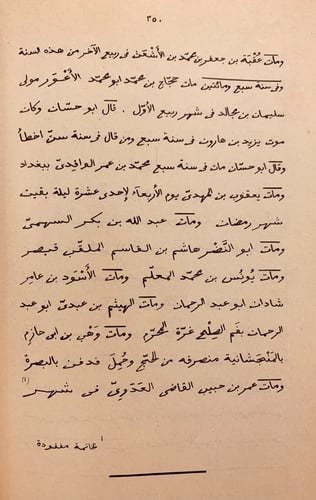 ٣٥٠
ومات عُقْبَة بن جعفر بن محمّد بن الأَشْعَث فى ربيع الآخر من هذه لسنة
وفى سنة سبع ومائتين مات حجّاج بن محمّد ابو محمّد الأَعْوَر مولى
سليمان بن مجالد فى شهر ربيع الأوّل. قال ابو حسّان وكان
موت يزيد بن هارون فى سنة سبع ومن قال فى سنة ستّ اخطأ
وقال ابو حسّان مات فى سنة سبع محمّد بن عمر الواقدىّ ببغداد
ومات يعقوب بن المهدىّ يوم الأربعاء لإحدى عشرة ليلة بقيت
شهر رمضان ومات عبد الله بن بكر السهمىّ
ومات ابو النَّضْر هاشم بن القاسم الملقّب قيصر
ومات يُونُس بن محمّد المعلّم ومات الأَسْوَد بن عامر
شاذان ابو عبد الرحمان ومات الهيثم بن عدىّ ابو عبد
الرحمان بفَم الصِّلْح غرّة المحرّم ومات وَهْب بن ابى حازم
بالمَنْجَشانية منصرفه من الحَجّ وحُمِل فدفن بالبصرة
ومات عمر بن حبيب القاضى العَدَوىّ فى شهر (١)
١ خاتمة مفقودة